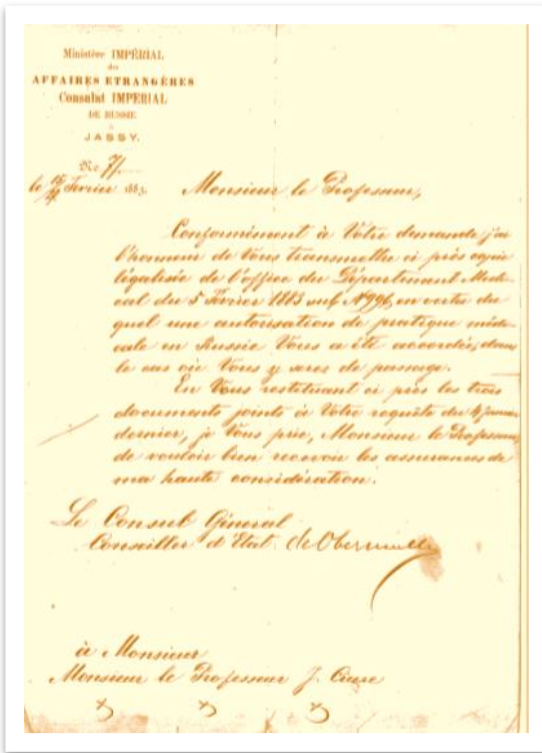 Ministère IMPÉRIAL
des
AFFAIRES ETRANGÈRES
Consulat IMPERIAL
DE RUSSIE
à
JASSY.
No 71
le Fevrier 1883.
Monsieur le Professeur,
Conformément à Votre demande j'ai
l'honneur de Vous transmettre ci près copie
légalisée de l'office du Département Medi-
cal du 5 Fevrier 1883 sub No 996, en vertu du
quel une autorisation de pratique médi-
cale en Russie Vous a été accordée, dans
le cas où Vous y seres de passage.
En Vous restituant ci près les trois
documents joints à Votre requête du 4 Janvier
dernier, je Vous prie, Monsieur le Professeur,
de vouloir bien recevoir les assurances de
ma haute considération.
Le Consul Général
Conseiller d'Etat
à Monsieur
Monsieur le Professeur J. Ciure